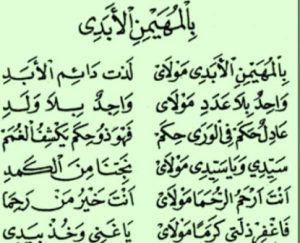 بِالْمُهَيْمِنِ الْأَبَدِى
بِالْمُهَيْمِنِ الْأَبَدِى مَوْلَاىَ لُذْتُ دَائِمَ الْأَبَدِ
وَاحِدٌ بِلَا عَدَدِ مَوْلَاىَ وَاحِدٌ بِلَا وَلَدِ
عَادِلٌ حَكَمْ فِى الْوَرٰى حِكَمْ فَهُوَ ذُو حِكَمْ يَكْشِفُ الْغُمَمْ
سَيِّدِى وَيَا سَيِّدِى مَوْلَاىَ نَجِّنَا مِنَ الْكَمَدِ
اَنْتَ اَرْحَمُ الرُّحَمَا مَوْلَاىَ اَنْتَ خَيْرُ مَنْ رَحِمَا
فَاغْفِرْ ذَلَّتِى كَرَمًا مَوْلَاىَ يَا غَنِى وَخُذْ بِيَدِى